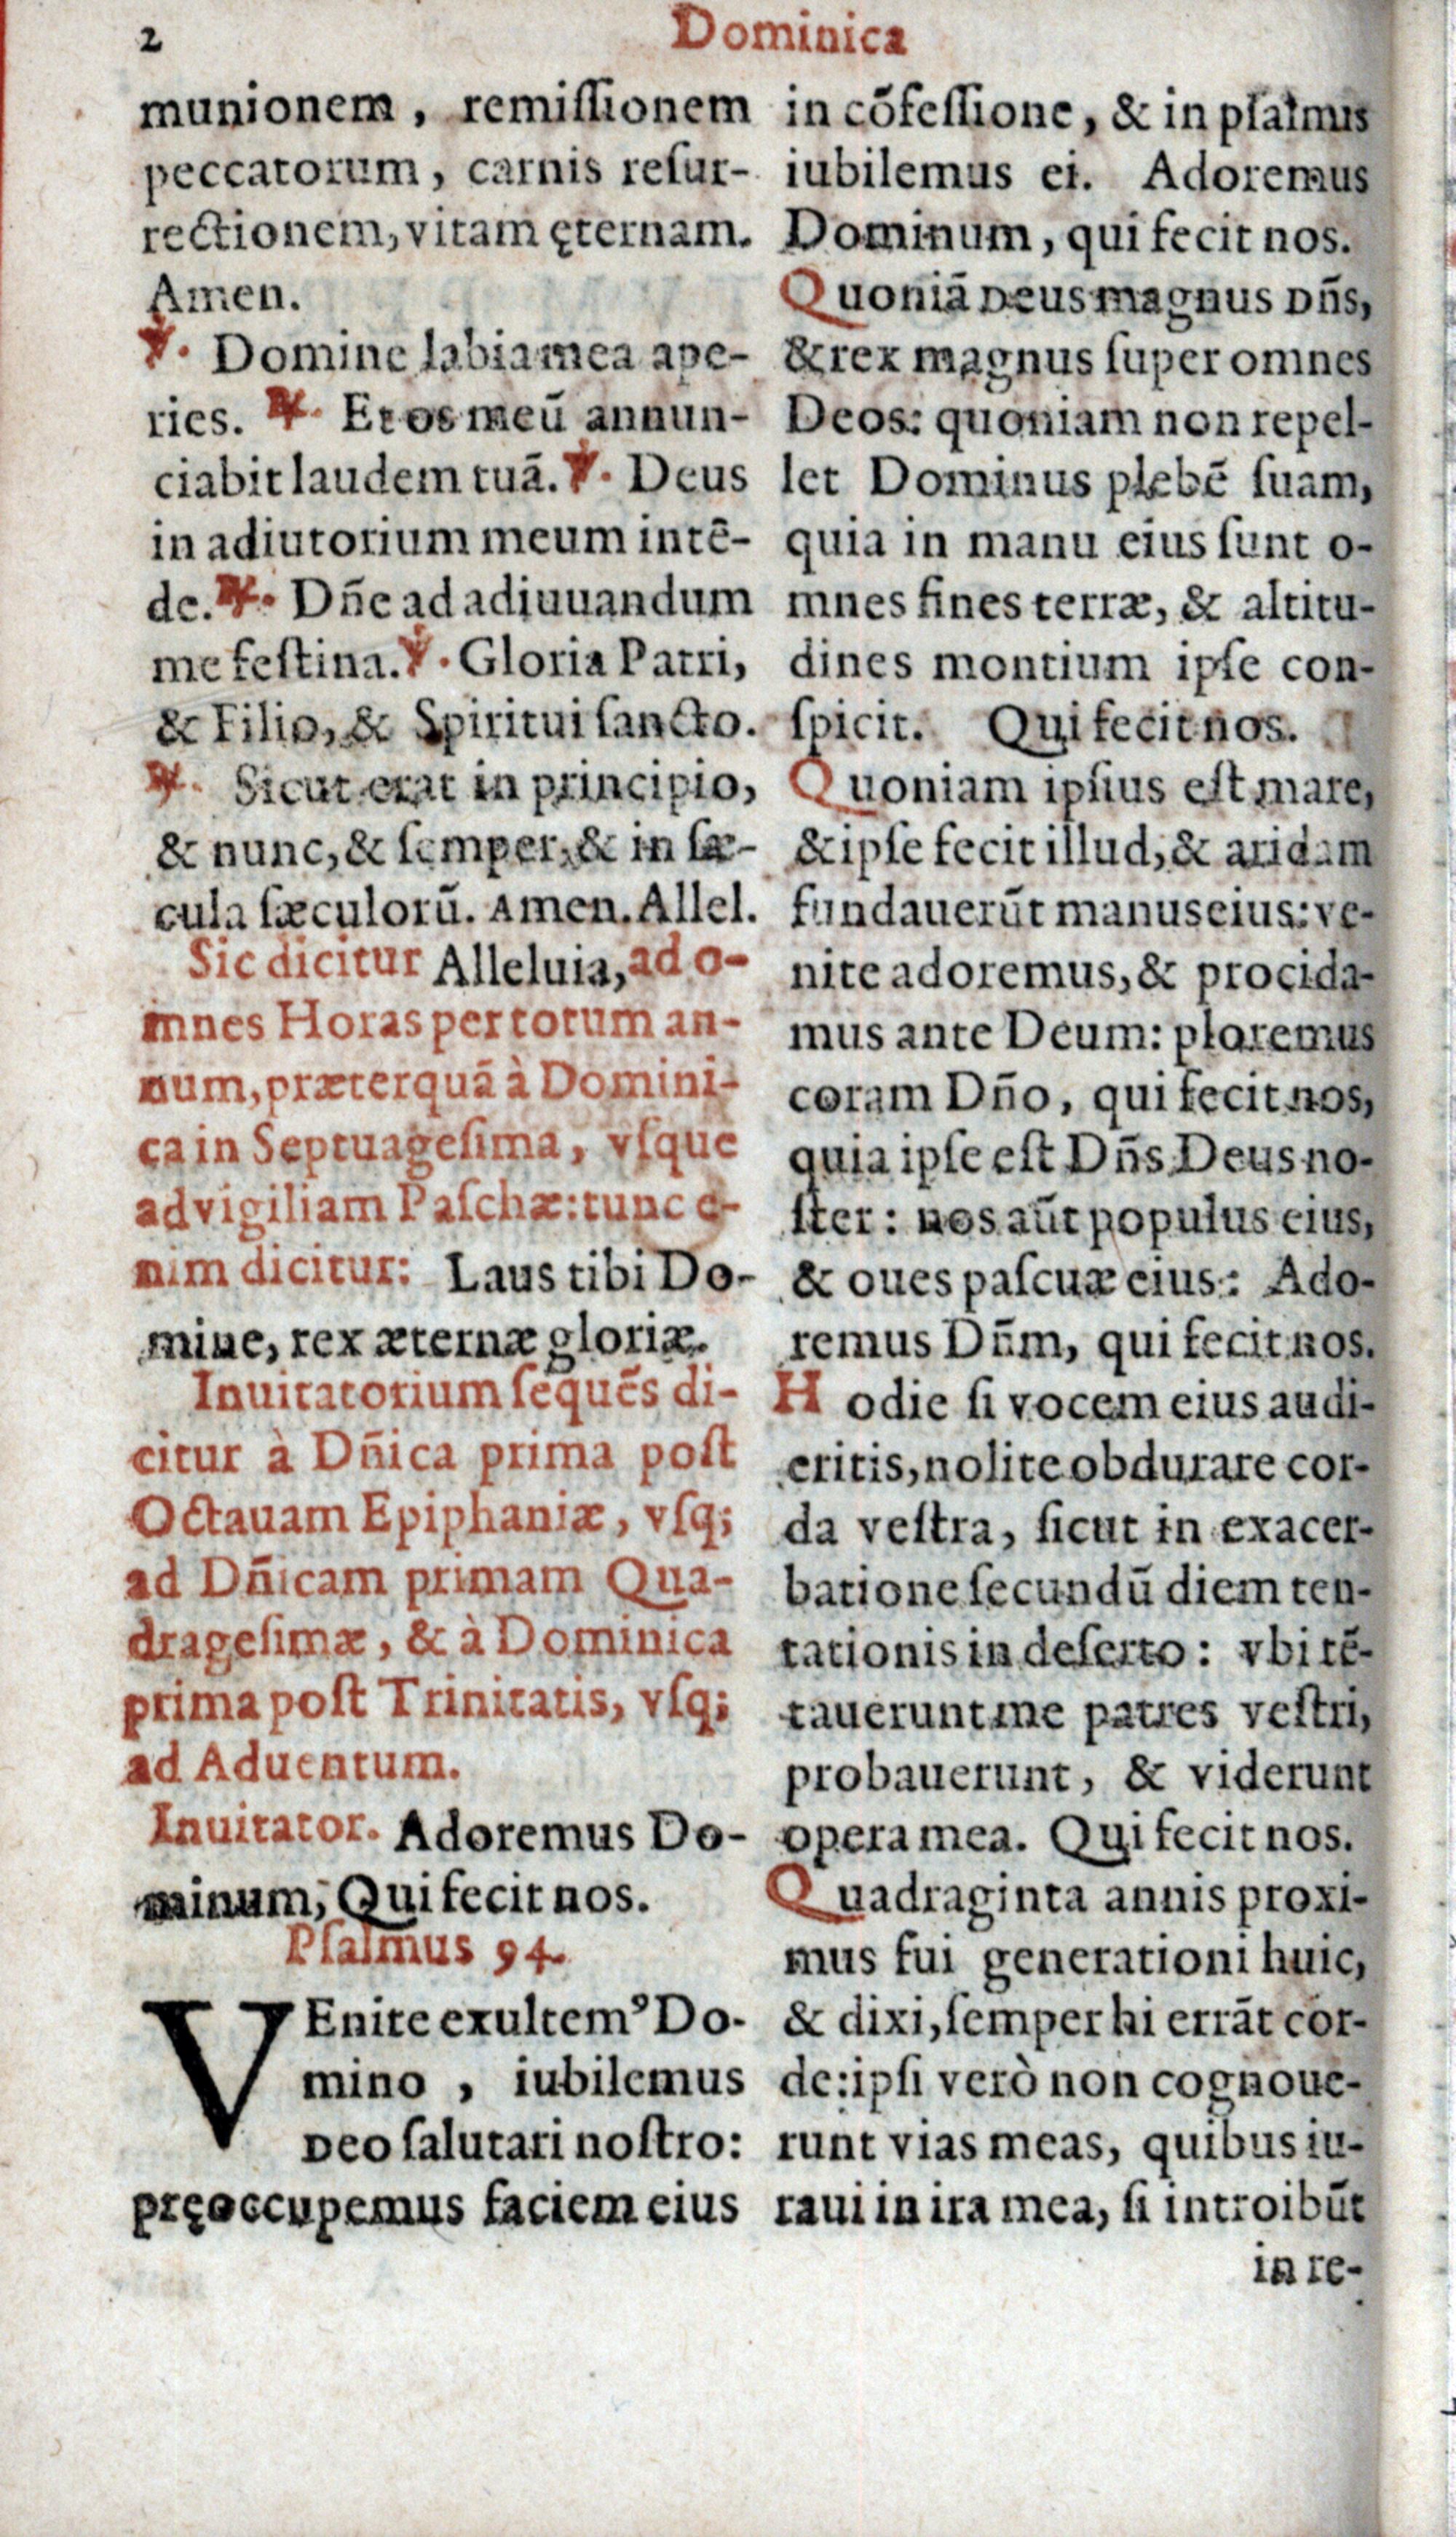 2
Dominica
munionem, remiſſionem
peccatorum, carnis reſur-
rectionem, vitam ęternam.
Amen.
℣. Domine labia mea ape-
ries. ℟. Et os meū annun-
ciabit laudem tuā. ℣. Deus
in adiutorium meum intē-
de. ℟. Dñe ad adiuuandum
me feſtina. ℣. Gloria Patri,
& Filio, & Spiritui ſancto.
℟. Sicut erat in principio,
& nunc, & ſemper, & in ſæ-
cula ſæculorū. Amen. Allel.
Sic dicitur Alleluia, ad o-
mnes Horas per totum an-
num, præterquā à Domini-
ca in Septuageſima, vſque
ad vigiliam Paſchæ: tunc e-
nim dicitur: Laus tibi Do-
mine, rex æternæ gloriæ.
Inuitatorium ſequēs di-
citur à Dñica prima poſt
Octauam Epiphaniæ, vſq;
ad Dñicam primam Qua-
drageſimæ, & à Dominica
prima poſt Trinitatis, vſq;
ad Aduentum.
Inuitator. Adoremus Do-
minum, Qui fecit nos.
Pſalmus 94.
VEnite exultemꝰ Do-
mino, iubilemus
Deo ſalutari noſtro:
pręoccupemus faciem eius
in cōfeſſione, & in pſalmis
iubilemus ei. Adoremus
Dominum, qui fecit nos.
Quoniā Deus magnus Dñs,
& rex magnus ſuper omnes
Deos: quoniam non repel-
let Dominus plebē ſuam,
quia in manu eius ſunt o-
mnes fines terræ, & altitu-
dines montium ipſe con-
ſpicit. Qui fecit nos.
Quoniam ipſius eſt mare,
& ipſe fecit illud, & aridam
fundauerūt manus eius: ve-
nite adoremus, & procida-
mus ante Deum: ploremus
coram Dño, qui fecit nos,
quia ipſe eſt Dñs Deus no-
ſter: nos aūt populus eius,
& oues paſcuæ eius: Ado-
remus Dñm, qui fecit nos.
Hodie ſi vocem eius audi-
eritis, nolite obdurare cor-
da veſtra, ſicut in exacer-
batione ſecundū diem ten-
tationis in deſerto: vbi tē-
tauerunt me patres veſtri,
probauerunt, & viderunt
opera mea. Qui fecit nos.
Quadraginta annis proxi-
mus fui generationi huic,
& dixi, ſemper hi errāt cor-
de: ipſi verò non cognoue-
runt vias meas, quibus iu-
raui in ira mea, ſi introibūt
in re-